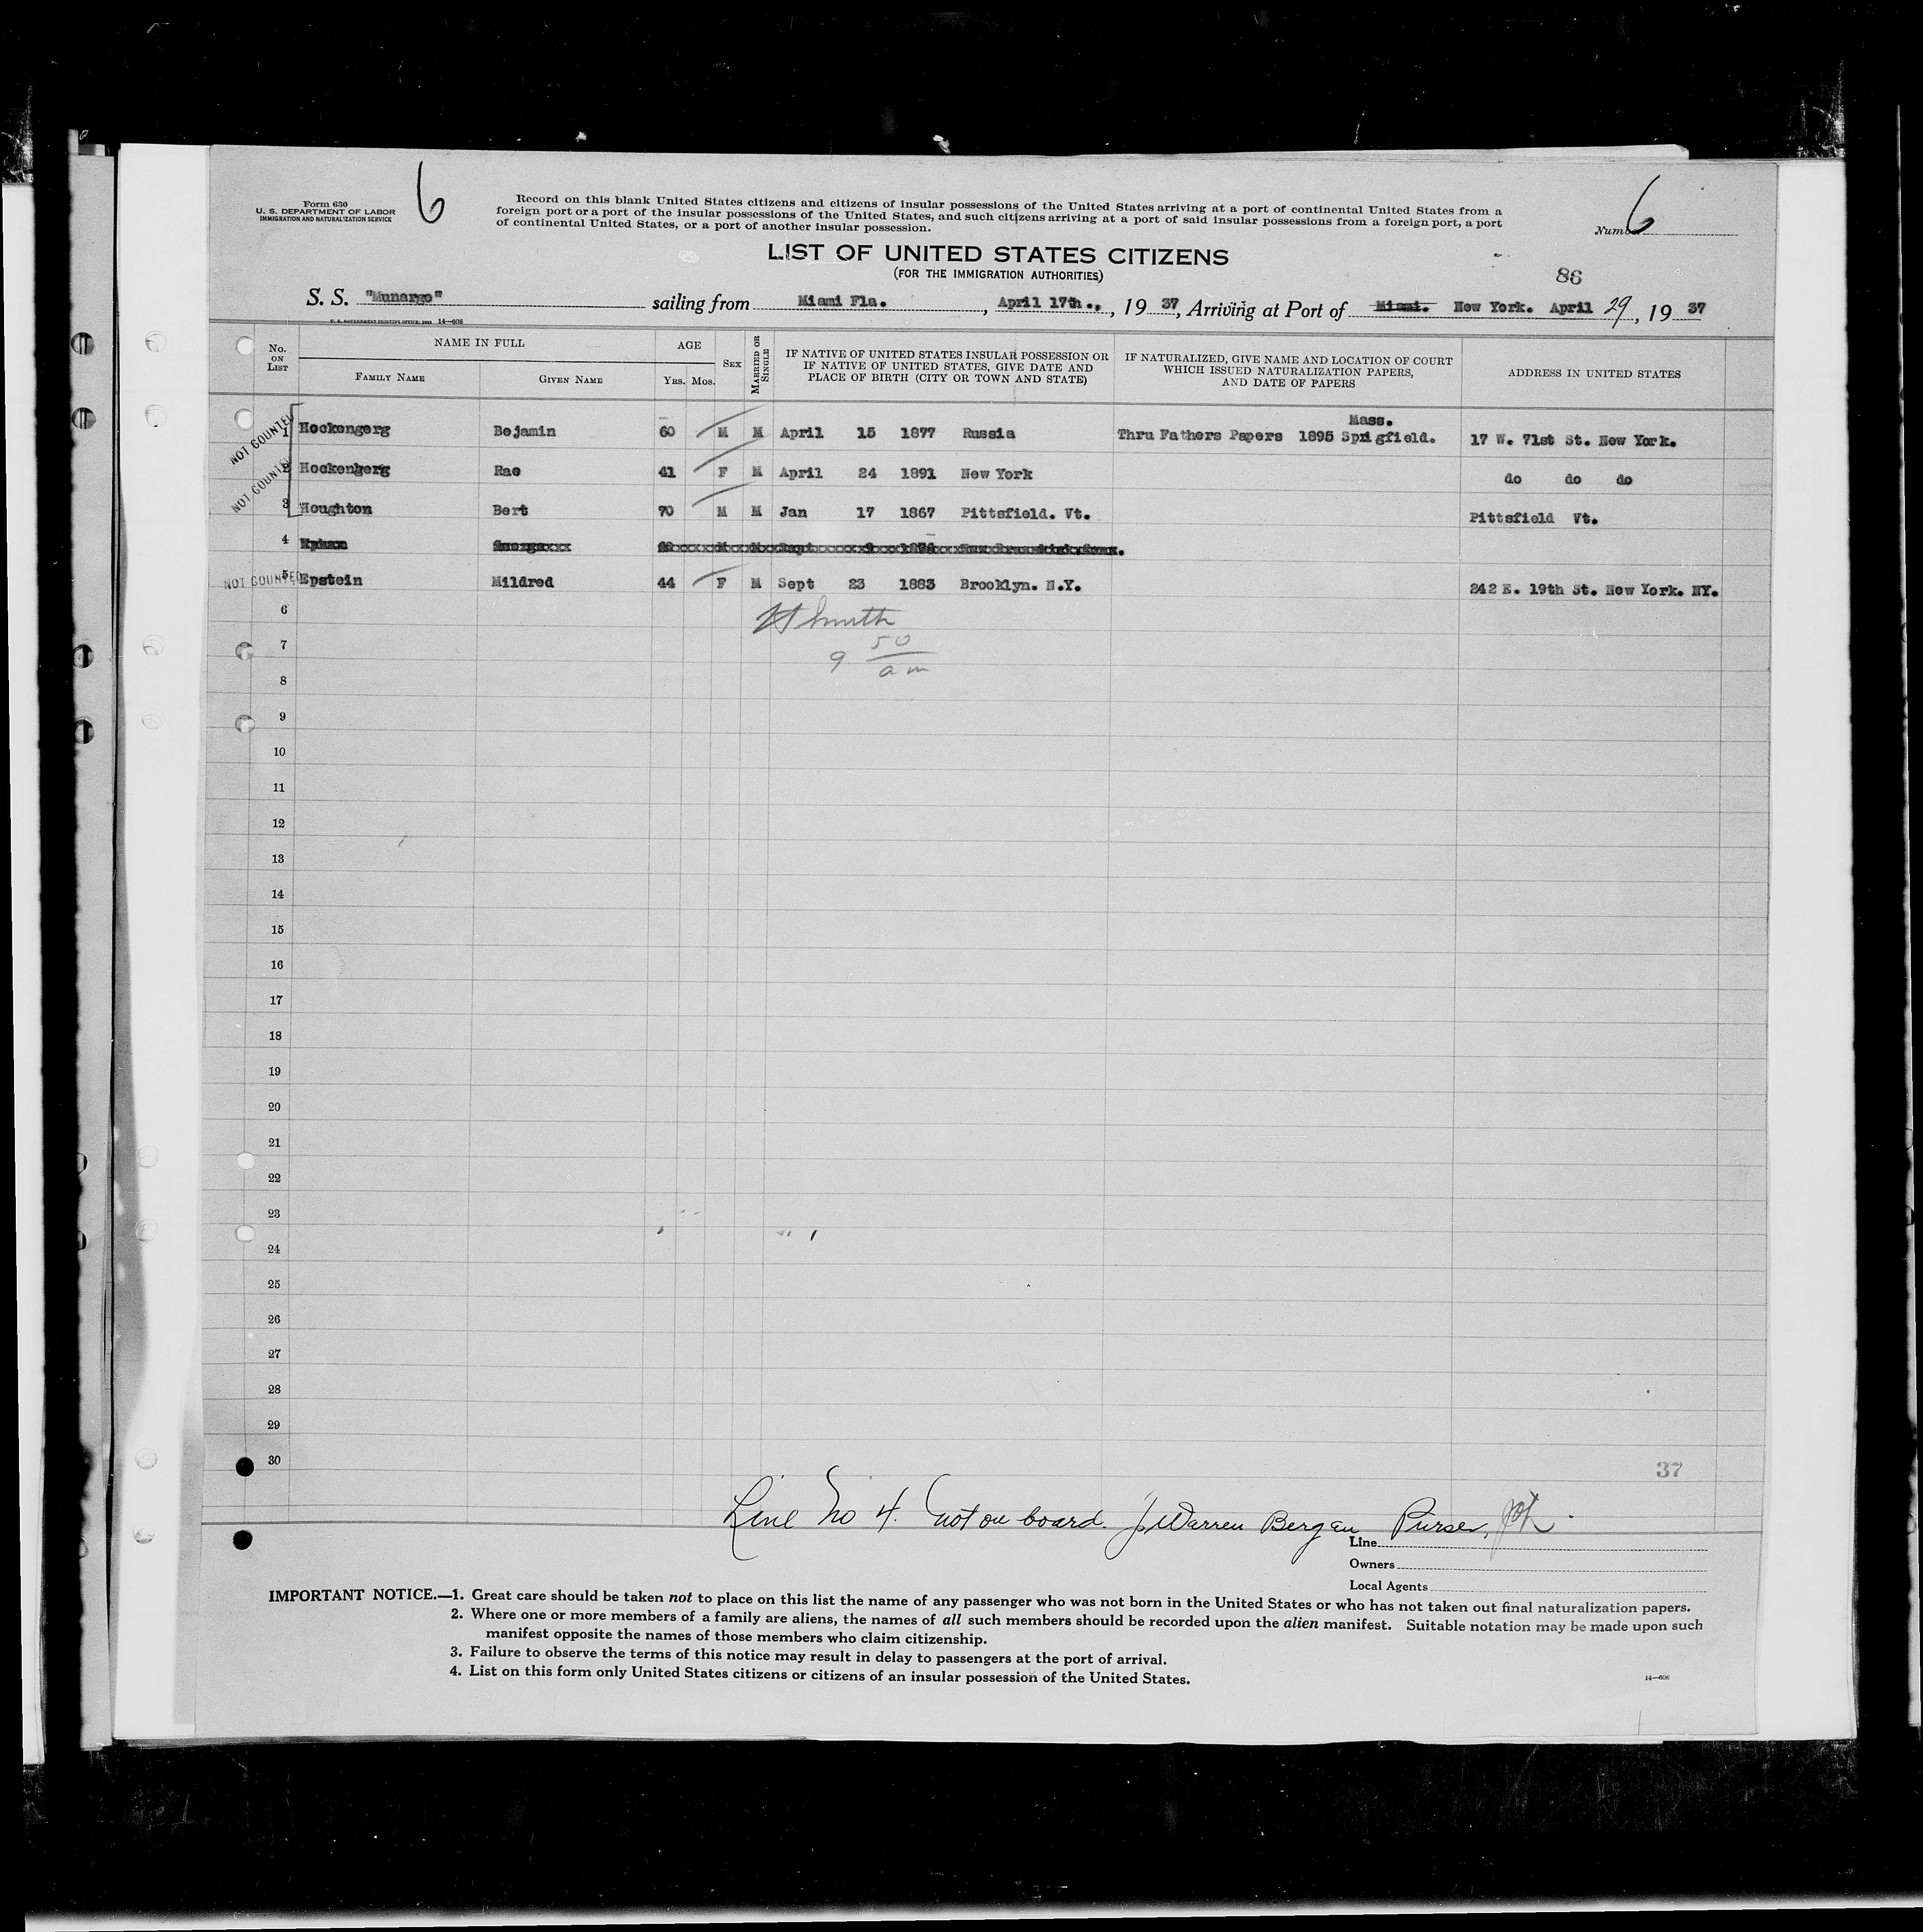 Form 630
U. S. DEPARTMENT OF LABOR
IMMIGRATION AND NATURALIZATION SERVICE
6
Record on this blank United States citizens and citizens of insular possessions of the United States arriving at a port of continental United States from a
foreign port or a port of the insular possessions of the United States, and such citizens arriving at a port of said insular possessions from a foreign port, a port
of continental United States, or a port of another insular possession.
Number 6
LIST OF UNITED STATES CITIZENS
(FOR THE IMMIGRATION AUTHORITIES)
86
S. S. "Munargo" sailing from Miami Fla. , April 17th., , 19 37, Arriving at Port of Miami. New York. April 29, 19 37
U. S. GOVERNMENT PRINTING OFFICE: 14—608
No. ON LIST NAME IN FULL AGE SEX MARRIED OR SINGLE IF NATIVE OF UNITED STATES INSULAR POSSESSION OR IF NATIVE OF UNITED STATES, GIVE DATE AND PLACE OF BIRTH (CITY OR TOWN AND STATE) IF NATURALIZED, GIVE NAME AND LOCATION OF COURT WHICH ISSUED NATURALIZATION PAPERS, AND DATE OF PAPERS ADDRESS IN UNITED STATES
FAMILY NAME GIVEN NAME YRS. MOS.
NOT COUNTED 1 Hockengerg Bejamin 60 M M April 15 1877 Russia Thru Fathers Papers 1895 Sprigfield. Mass. 17 W. 71st St. New York.
NOT COUNTED 2 Hockenberg Rae 41 F M April 24 1891 New York do do do
3 Houghton Bert 70 M M Jan 17 1867 Pittsfield. Vt. Pittsfield Vt.
4
NOT COUNTED 5 Epstein Mildred 44 F M Sept 23 1883 Brooklyn. N.Y. 242 E. 19th St. New York. NY.
6 Smith
7 9 50 am
8
9
10
11
12
13
14
15
16
17
18
19
20
21
22
23
24
25
26
27
28
29
30
37
Line No 4. not on board. J Warren Bergan Purser,
Line
Owners
Local Agents
IMPORTANT NOTICE.—1. Great care should be taken not to place on this list the name of any passenger who was not born in the United States or who has not taken out final naturalization papers.
2. Where one or more members of a family are aliens, the names of all such members should be recorded upon the alien manifest. Suitable notation may be made upon such
manifest opposite the names of those members who claim citizenship.
3. Failure to observe the terms of this notice may result in delay to passengers at the port of arrival.
4. List on this form only United States citizens or citizens of an insular possession of the United States.
14—608